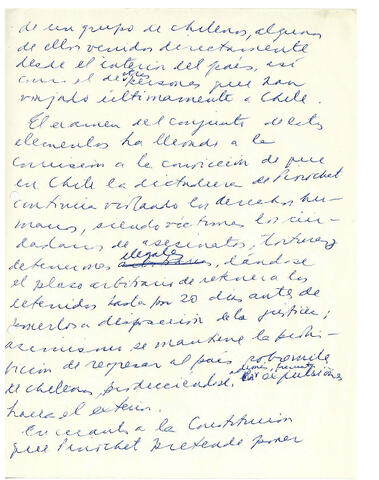 de un grupo de chilenos, algunos
de ellos venidos directamente
desde el interior del país, así
como el de otras personas que han
viajado últimamente a Chile.
El examen del conjunto de estos
elementos ha llevado a la
comisión a la convicción de que
en Chile la dictadura de Pinochet
continúa violando los derechos hu-
manos, siendo víctimas los ciu-
dadanos de asesinatos, torturas,
detenciones ilegales, dándose
el plazo arbitrario de retener a los
detenidos hasta por 20 días antes de
ponerlos a disposición de la justicia;
asimismo se mantiene la prohi-
bición de regresar al país
de chilenos, produciéndose expulsiones
hacia el exterior.
En cuanto a la Constitución
que Pinochet pretende poner